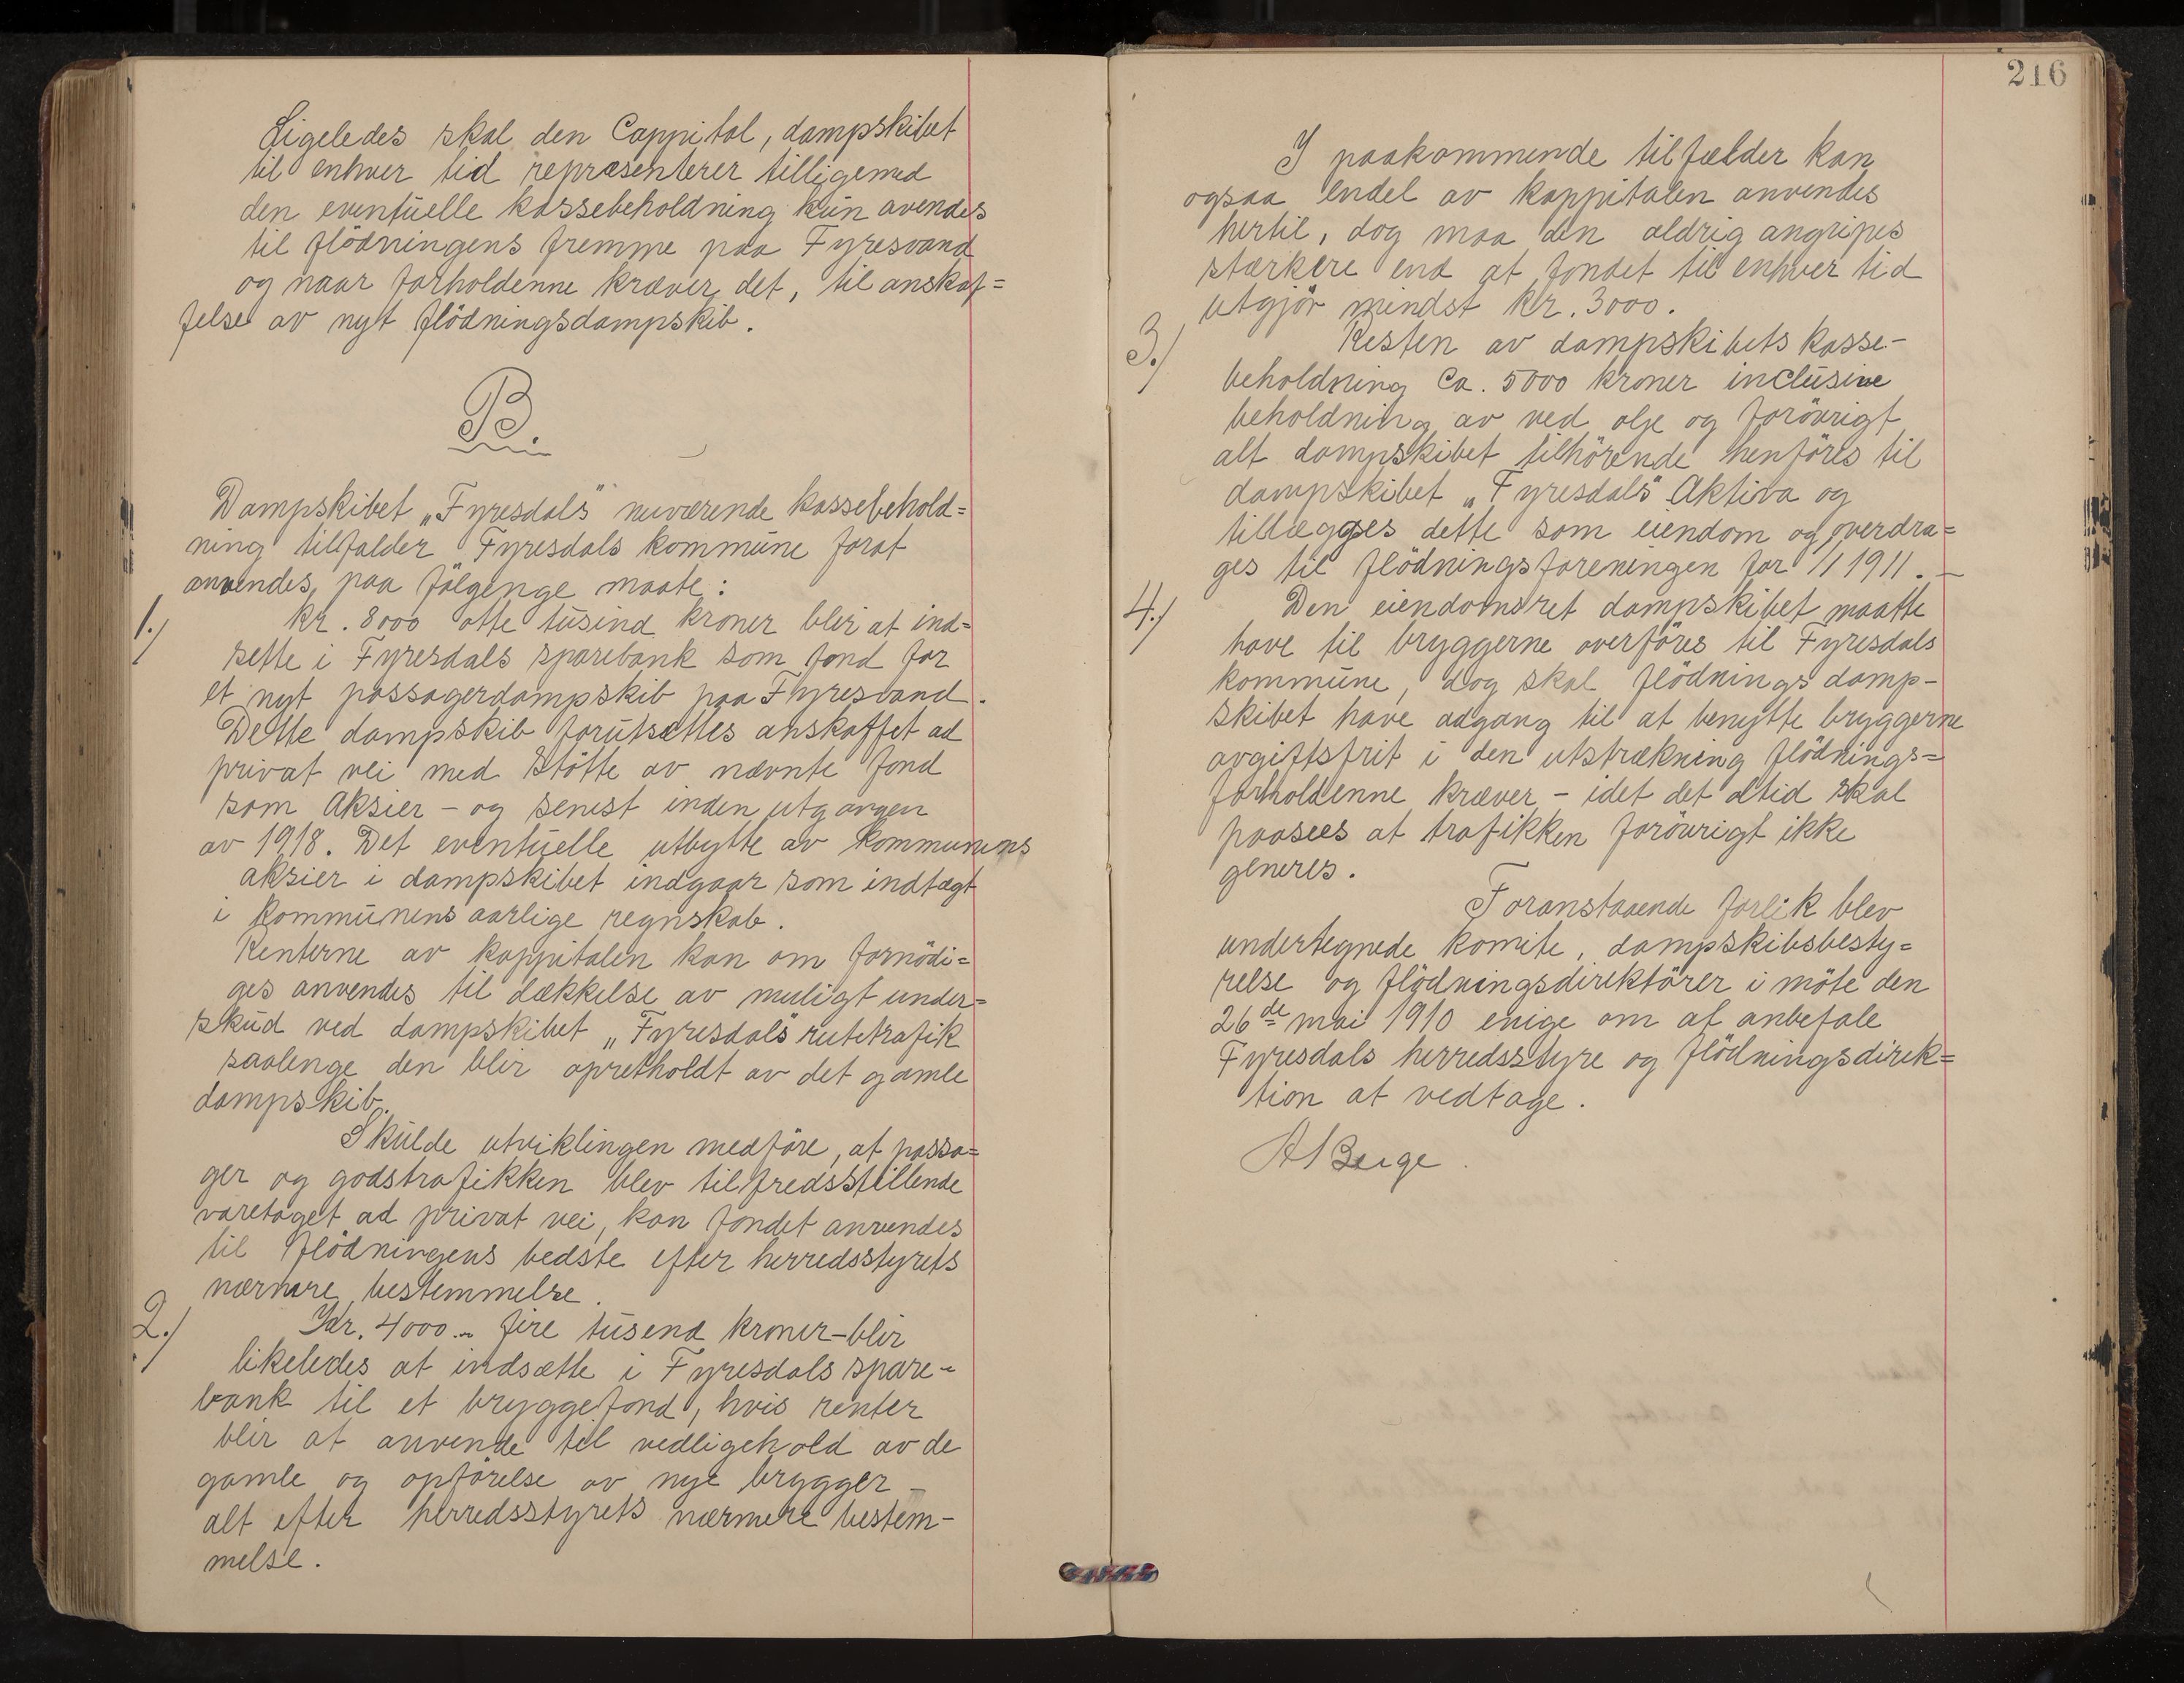 Ligeledes skal den Cappital, dampskibet
til enhver tid repræsenterer tilligemed
den eventuelle kassebeholdning kun avendes
til flödningens fremme paa Fyresvand
og naar forholdenne kræver det, til anskaf=
felse av nyt flödningsdampskib.
B.
Dampskibet „Fyresdals" nuværende kassebehold=
ning tilfalder Fyresdals kommune forat
anvendes paa fölgenge maate:
1./ Kr. 8000 otte tusind kroner blir at ind=
sette i Fyresdals sparebank som fond for
et nyt passagerdampskib paa Fyresvand.
Dette dampskib forutsættes anskaffet ad
privat vei med Stötte av nævnte fond
som Aksier - og senest inden utgangen
av 1918. Det eventuelle utbytte av kommunens
aksier i dampskibet indgaar som indtægt
i kommunens aarlige regnskab.
Renterne av kappitalen kan om fornödi=
ges anvendes til dækkelse av muligt under=
skud ved dampskibet „Fyresdals" rutetrafik
saalenge den blir opretholdt av det gamle
dampskib.
Skulde utviklingen medföre, at passa=
ger og godstrafikken blev tilfredsstillende
varetaget ad privat vei, kan fondet anvendes
til flödningens bedste efter herredsstyrets
nærmere bestemmelse.
2./ Kr. 4000.- fire tusend kroner-blir
likeledes at indsætte i Fyresdals spare-
bank til et bryggefond, hvis renter
blir at anvende til vedligehold av de
gamle og opförelse av nye brygger -
alt efter herredsstyrets nærmere bestem-
melse.
216
I paakommende tilfælder kan
ogsaa endel av kappitalen anvendes
hertil, dog maa den aldrig angripes
stærkere end at fondet til enhver tid
utgjör mindst kr. 3000.
3./ Resten av dampskibets kasse-
beholdning Ca. 5000 kroner inclusive
beholdning av ved olje og forövrigt
alt dampskibet tilhörende henföres til
dampskibet „Fyresdals" Aktiva og
tillægges dette som eiendom og overdra=
ges til flödningsforeningen for 1/1 1911. -
4./ Den eiendomsret dampskibet maatte
have til bryggerne overföres til Fyresdals
kommune, dog skal flödnings damp-
skibet have adgang til at benytte bryggerne
avgiftsfrit i den utstrækning flödnings=
forholdenne kræver - idet det altid skal
paasees at trafikken forövrigt ikke
generes.
Foranstaaende forlik blev
undertegnede komite, dampskibsbesty=
relse og flödningsdirektörer i möte den
26de mai 1910 enige om at anbefale
Fyresdals herredsstyre og flödningsdirek=
tion at vedtage.
A Berge